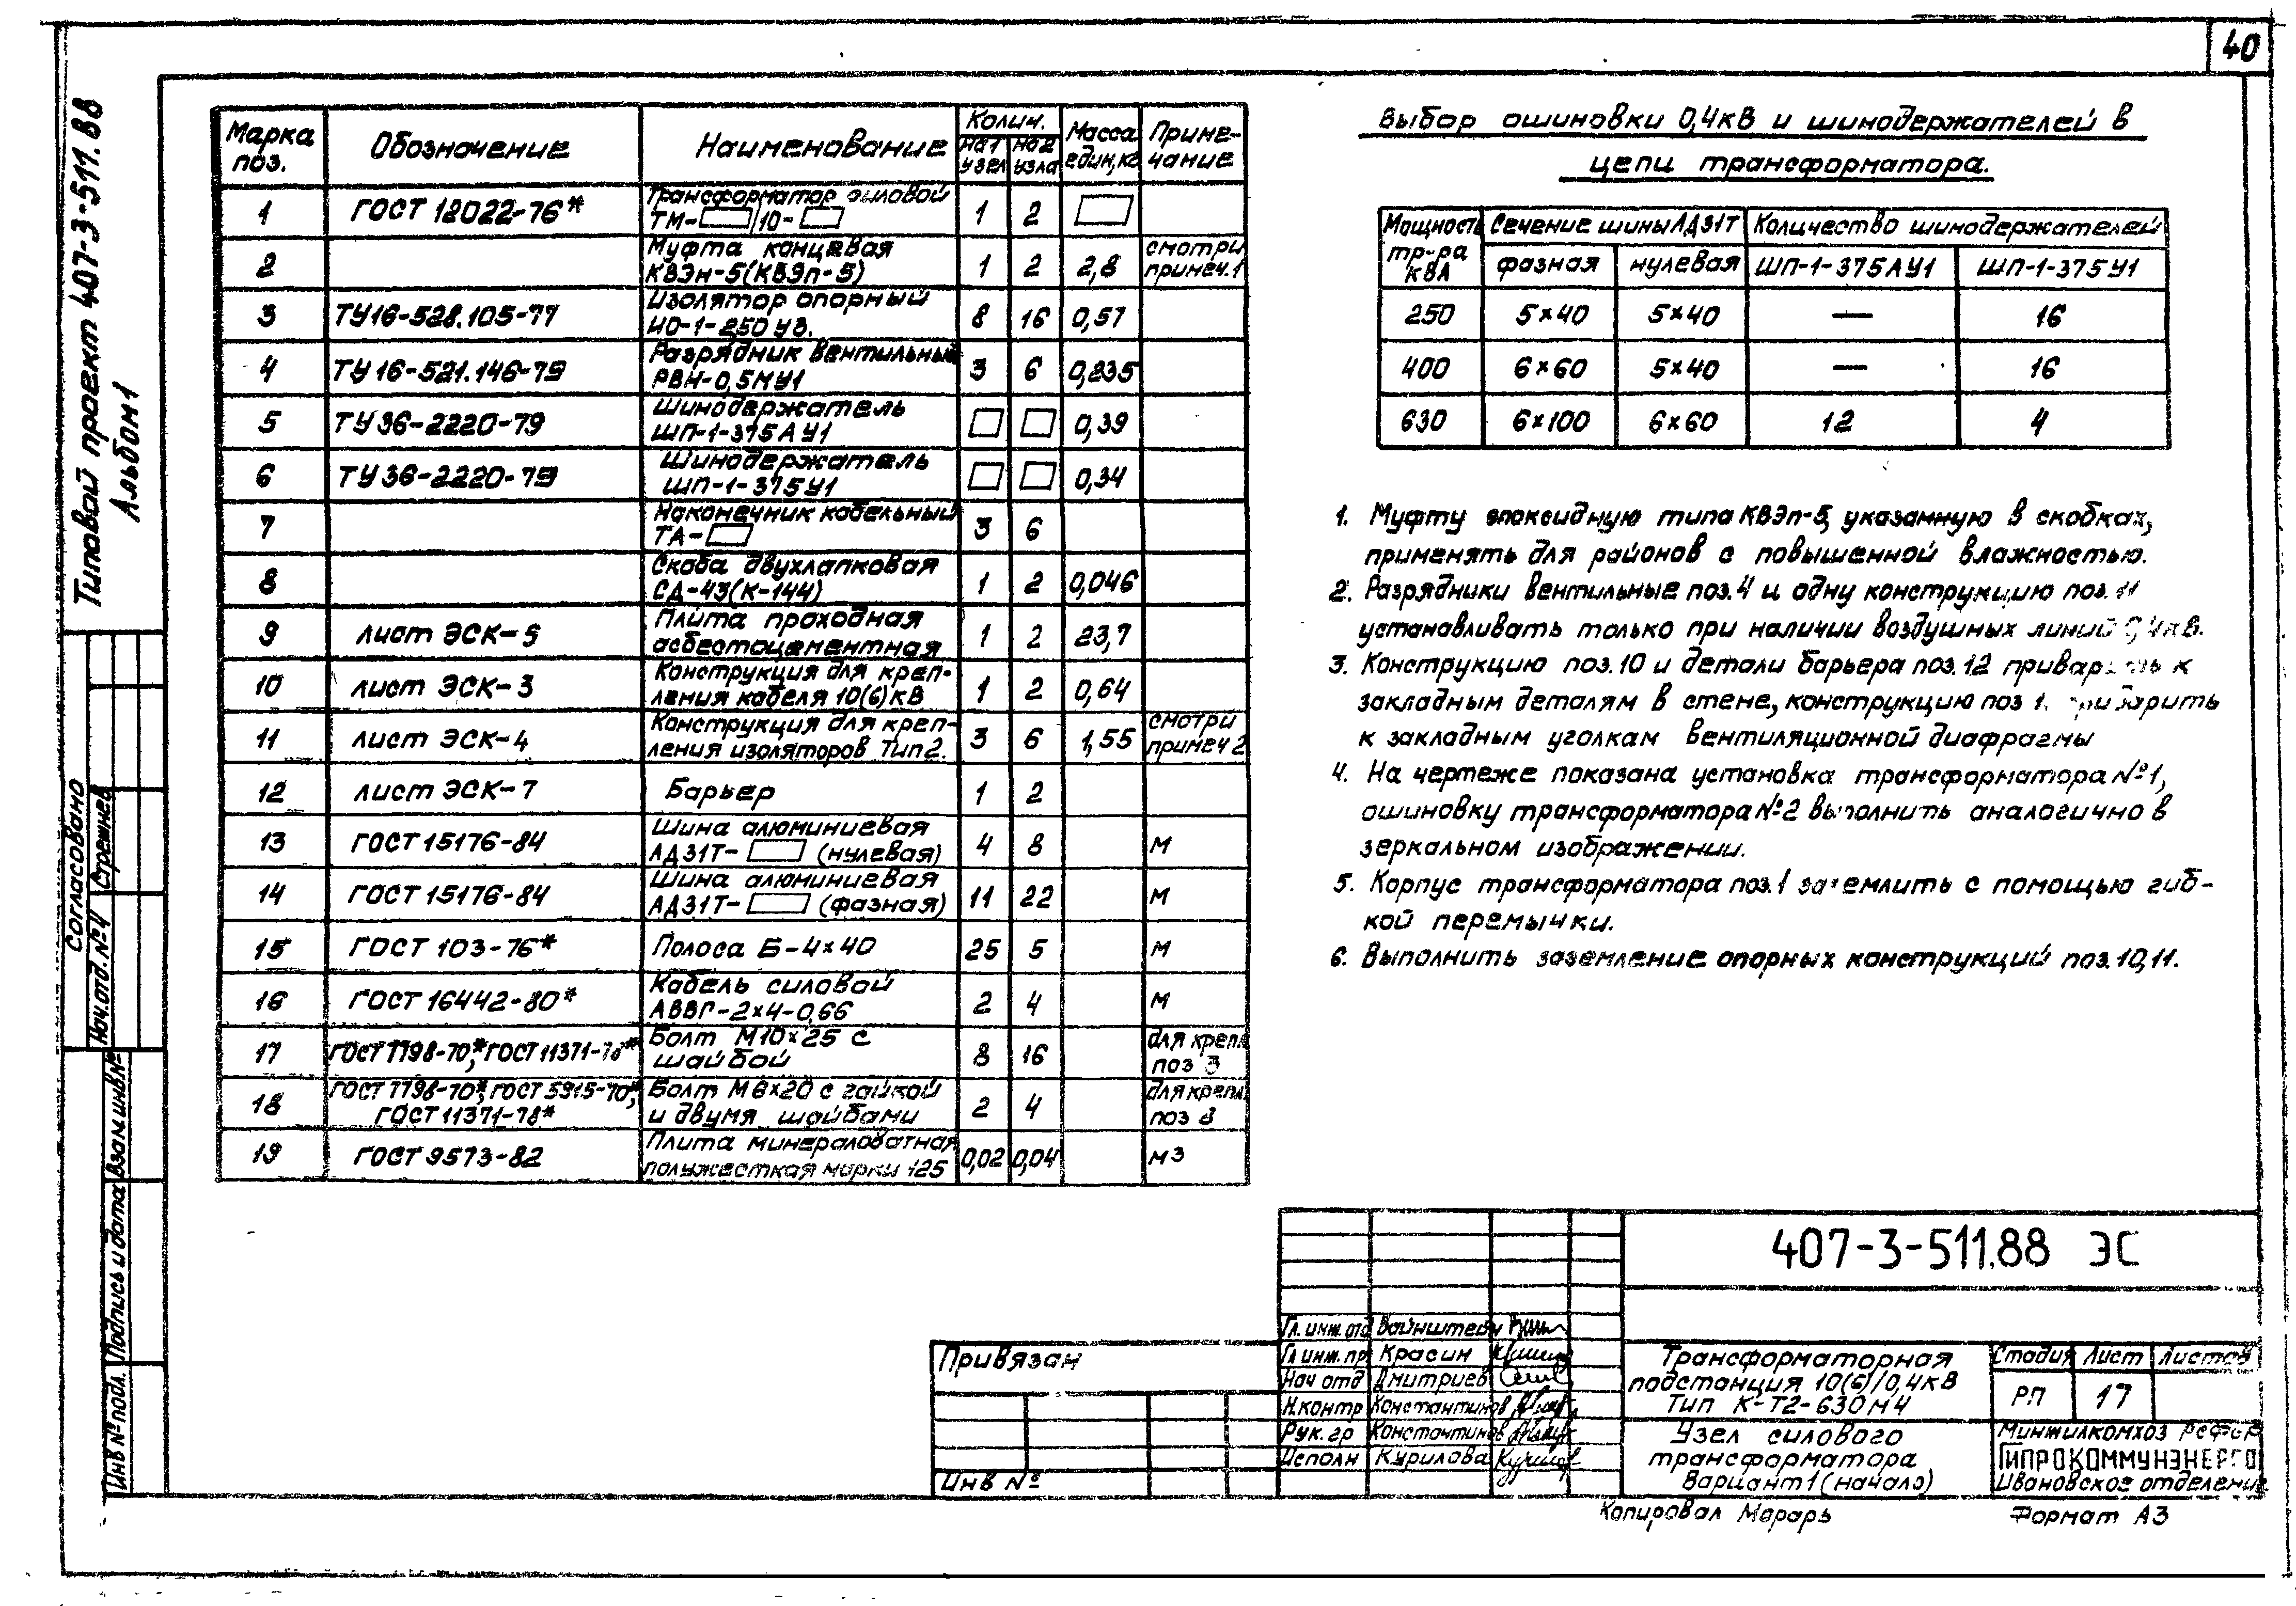 40
Типовой проект 407-3-511.88
Альбом 1
Согласовано
Нач.отд. №4 Стрежнев
Взам.инв.№
Подпись и дата
Инв № подл.
Марка поз. Обозначение Наименование Колич. на 1 узел на 2 узла Масса един,кг Примечание
1 ГОСТ 12022-76* Трансформатор силовой
ТМ- /10- 1 2
2 Муфта концевая
КВЭн-5(КВЭп-5) 1 2 2,8 смотри
примеч.1
3 ТУ16-528.105-77 Изолятор опорный
ИО-1-250 У3. 8 16 0,57
4 ТУ16-521.146-79 Разрядник вентильный
РВН-0,5МУ1 3 6 0,235
5 ТУ36-2220-79 Шинодержатель
ШП-1-375А У1 0,39
6 ТУ36-2220-79 Шинодержатель
ШП-1-375У1 0,34
7 Наконечник кабельный
ТА- 3 6
8 Скоба двухлапковая
СД-43(К-144) 1 2 0,046
9 лист ЭСК-5 Плита проходная
асбестоцементная 1 2 23,7
10 лист ЭСК-3 Конструкция для креп-
ления кабеля 10(6)кВ 1 2 0,64
11 лист ЭСК-4 Конструкция для креп-
ления изоляторов Тип 2. 3 6 1,55 смотри
примеч 2
12 лист ЭСК-7 Барьер 1 2
13 ГОСТ 15176-84 Шина алюминиевая
АД31Т- (нулевая) 4 8 м
14 ГОСТ 15176-84 Шина алюминиевая
АД31Т- (фазная) 11 22 м
15 ГОСТ 103-76* Полоса Б-4×40 25 5 м
16 ГОСТ 16442-80* Кабель силовой
АВВГ-2×4-0,66 2 4 м
17 ГОСТ 7798-70*, ГОСТ 11371-78* Болт М10×25 с
шайбой 8 16 для креп.
поз 3
18 ГОСТ 7798-70*, ГОСТ 5915-70*,
ГОСТ 11371-78* Болт М6×20 с гайкой
и двумя шайбами 2 4 для крепл
поз 8
19 ГОСТ 9573-82 Плита минераловатная
полужесткая марки 125 0,02 0,04 м3
Выбор ошиновки 0,4кВ и шинодержателей в
цепи трансформатора.
Мощность тр-ра кВА Сечение шины АД31Т Количество шинодержателей
фазная нулевая ШП-1-375АУ1 ШП-1-375У1
250 5×40 5×40 — 16
400 6×60 5×40 — 16
630 6×100 6×60 12 4
1. Муфту эпоксидную типа КВЭп-5, указанную в скобках,
применять для районов с повышенной влажностью.
2. Разрядники вентильные поз.4 и одну конструкцию поз.11
устанавливать только при наличии воздушных линий 0,4кВ.
3. Конструкцию поз.10 и детали барьера поз.12 приварить к
закладным деталям в стене, конструкцию поз приварить
к закладным уголкам вентиляционной диафрагмы
4. На чертеже показана установка трансформатора №1,
ошиновку трансформатора №2 выполнить аналогично в
зеркальном изображении.
5. Корпус трансформатора поз.1 заземлить с помощью гиб-
кой перемычки.
6. Выполнить заземление опорных конструкций поз.10,11.
407-3-511.88 ЭС
Гл.инж.отд Вайнштейн
Гл инж.пр Красин
Нач отд Дмитриев
Н.контр Константинов
Рук.гр Константинов
Исполн Курилова
Привязан
Инв №
Трансформаторная
подстанция 10(6)/0,4кВ
Тип К-Т2-630М4
Узел силового
трансформатора
Вариант 1 (начало)
Стадия Лист Листов
РП 17
Минжилкомхоз РСФСР
ГИПРОКОММУНЭНЕРГО
Ивановское отделение
Копировал
Формат А3